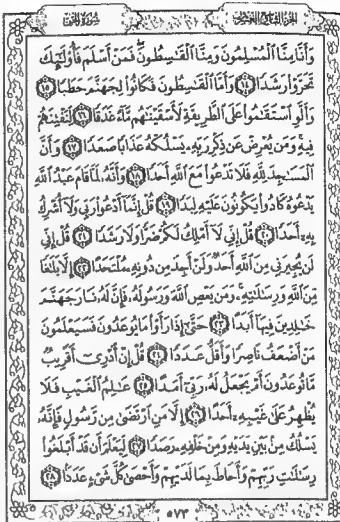 الجزء التاسع والعشرون سورة الجن
وَأَنَّا مِنَّا الْمُسْلِمُونَ وَمِنَّا الْقَاسِطُونَ فَمَنْ أَسْلَمَ فَأُولَٰئِكَ
تَحَرَّوْا رَشَدًا ﴿١٤﴾ وَأَمَّا الْقَاسِطُونَ فَكَانُوا لِجَهَنَّمَ حَطَبًا ﴿١٥﴾
وَأَلَّوِ اسْتَقَامُوا عَلَى الطَّرِيقَةِ لَأَسْقَيْنَاهُم مَّاءً غَدَقًا ﴿١٦﴾ لِّنَفْتِنَهُمْ
فِيهِ وَمَن يُعْرِضْ عَن ذِكْرِ رَبِّهِ يَسْلُكْهُ عَذَابًا صَعَدًا ﴿١٧﴾ وَأَنَّ
الْمَسَاجِدَ لِلَّهِ فَلَا تَدْعُوا مَعَ اللَّهِ أَحَدًا ﴿١٨﴾ وَأَنَّهُ لَمَّا قَامَ عَبْدُ اللَّهِ
يَدْعُوهُ كَادُوا يَكُونُونَ عَلَيْهِ لِبَدًا ﴿١٩﴾ قُلْ إِنَّمَا أَدْعُو رَبِّي وَلَا أُشْرِكُ
بِهِ أَحَدًا ﴿٢٠﴾ قُلْ إِنِّي لَا أَمْلِكُ لَكُمْ ضَرًّا وَلَا رَشَدًا ﴿٢١﴾ قُلْ إِنِّي
لَن يُجِيرَنِي مِنَ اللَّهِ أَحَدٌ وَلَنْ أَجِدَ مِن دُونِهِ مُلْتَحَدًا ﴿٢٢﴾ إِلَّا بَلَاغًا
مِّنَ اللَّهِ وَرِسَالَاتِهِ وَمَن يَعْصِ اللَّهَ وَرَسُولَهُ فَإِنَّ لَهُ نَارَ جَهَنَّمَ
خَالِدِينَ فِيهَا أَبَدًا ﴿٢٣﴾ حَتَّىٰ إِذَا رَأَوْا مَا يُوعَدُونَ فَسَيَعْلَمُونَ
مَنْ أَضْعَفُ نَاصِرًا وَأَقَلُّ عَدَدًا ﴿٢٤﴾ قُلْ إِنْ أَدْرِي أَقَرِيبٌ
مَّا تُوعَدُونَ أَمْ يَجْعَلُ لَهُ رَبِّي أَمَدًا ﴿٢٥﴾ عَالِمُ الْغَيْبِ فَلَا
يُظْهِرُ عَلَىٰ غَيْبِهِ أَحَدًا ﴿٢٦﴾ إِلَّا مَنِ ارْتَضَىٰ مِن رَّسُولٍ فَإِنَّهُ
يَسْلُكُ مِن بَيْنِ يَدَيْهِ وَمِنْ خَلْفِهِ رَصَدًا ﴿٢٧﴾ لِّيَعْلَمَ أَن قَدْ أَبْلَغُوا
رِسَالَاتِ رَبِّهِمْ وَأَحَاطَ بِمَا لَدَيْهِمْ وَأَحْصَىٰ كُلَّ شَيْءٍ عَدَدًا ﴿٢٨﴾
٥٧٣